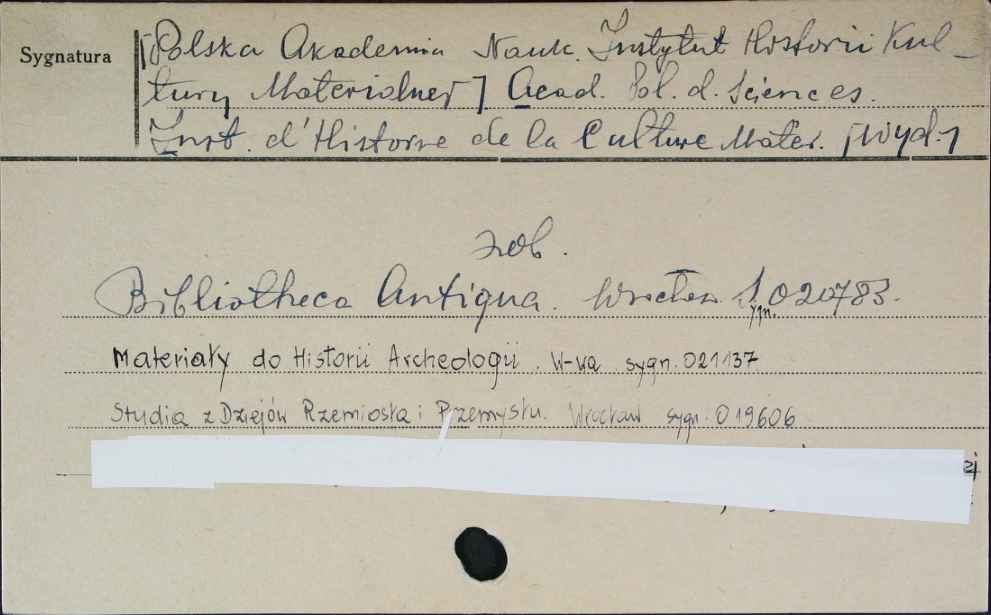 Sygnatura
[Polska Akademia Nauk. Instytut Historii Kul-
tury Materialnej] Acad. Pol. d. Sciences.
Inst. d'Histoire de la Culture Mater. [Wyd.]
zob.
Bibliotheca Antiqua. Wrocław. Sygn. 020783.
Materiały do Historii Archeologii. W-wa sygn. 021137
Studia z Dziejów Rzemiosła i Przemysłu. Wrocław sygn. 019606